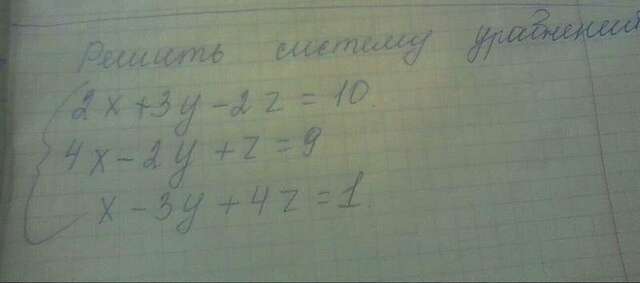 Решить систему уравнений
2x+3y-2z=10.
4x-2y+z=9
x-3y+4z=1.